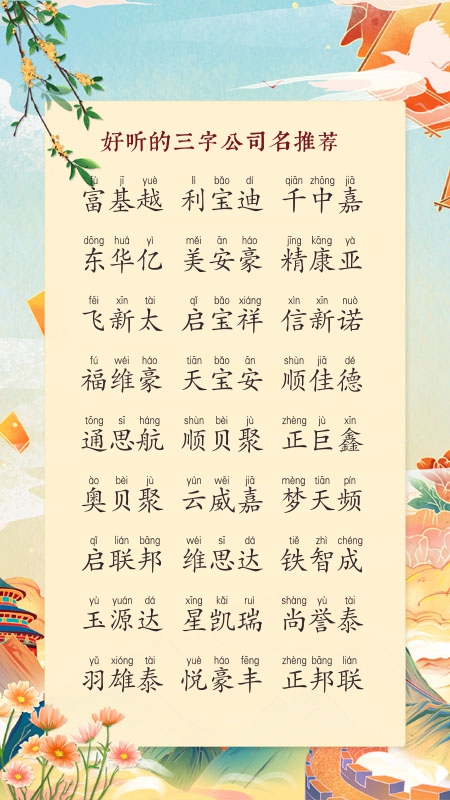 好听的三字公司名推荐
fù jī yuè lì bǎo dí qiān zhōng jiā
富基越 利宝迪 千中嘉
dōng huá yì měi ān háo jīng kāng yà
东华亿 美安豪 精康亚
fēi xīn tài qǐ bǎo xiáng xìn xīn nuò
飞新太 启宝祥 信新诺
fú wéi háo tiān bǎo ān shùn jiā dé
福维豪 天宝安 顺佳德
tōng sī háng shùn bèi jù zhèng jù xīn
通思航 顺贝聚 正巨鑫
ào bèi jù yún wēi jiā mèng tiān pín
奥贝聚 云威嘉 梦天频
qǐ lián bāng wéi sī dá tiě zhì chéng
启联邦 维思达 铁智成
yù yuán dá xīng kǎi ruì shàng yù tài
玉源达 星凯瑞 尚誉泰
yǔ xióng tài yuè háo fēng zhèng bāng lián
羽雄泰 悦豪丰 正邦联